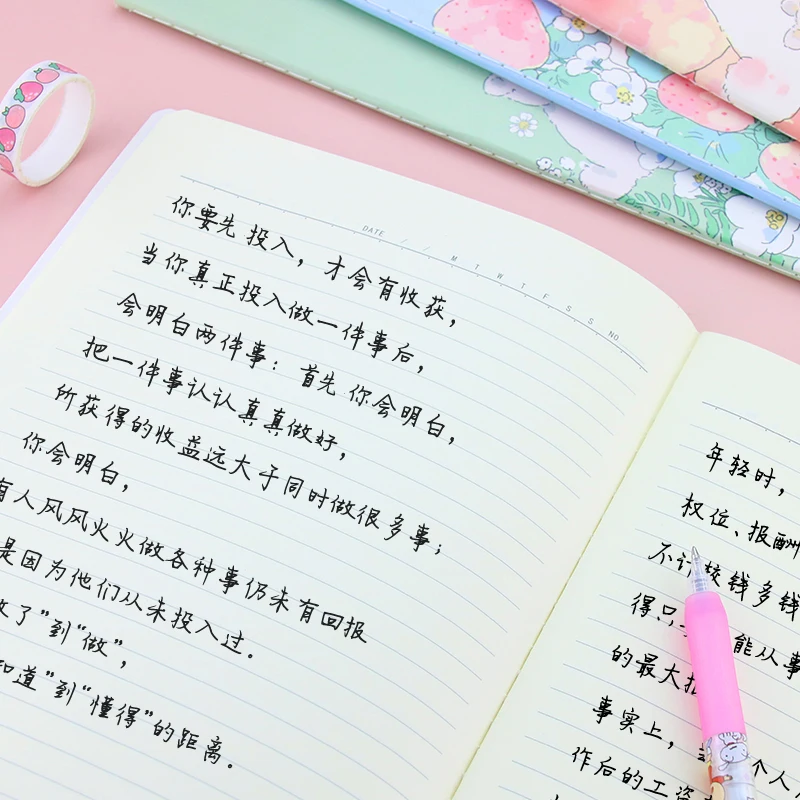 DATE / / M T W T F S S NO.
你要先投入，才会有收获，
当你真正投入做一件事后，
会明白两件事：首先你会明白，
把一件事认认真真做好，
所获得的收益远大于同时做很多事；
你会明白，
有人风风火火做各种事仍未有回报
是因为他们从未投入过。
了”到“做”，
知道”到“懂得”的距离。
年轻时，
权位、报酬
不计较钱多钱
得只 能从事
的最大
事实上， 个人
作后的工资